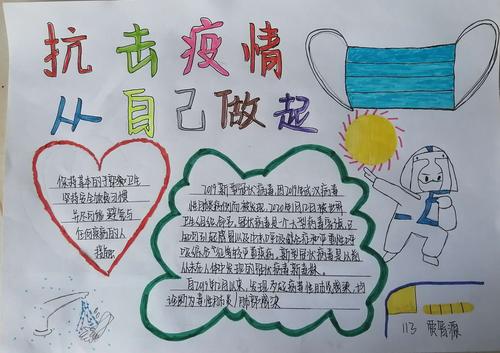 抗击疫情
从自己做起
保持基本的手部和卫生
坚持安全饮食习惯
并尽可能避免与
任何
的人
接触
2019新型冠状病毒,因2019年武汉病毒
性肺炎病例而被发现,2020年1月12日被世界
卫生组织命名,冠状病毒是一个大型病毒家族,已
知可引起感冒以及中东呼吸综合征和严重急性呼
吸综合征等较严重疾病,新型冠状病毒是以前
从未在人体中发现的冠状病毒新毒株。
自2019年12月以来,
病毒性肺炎
113